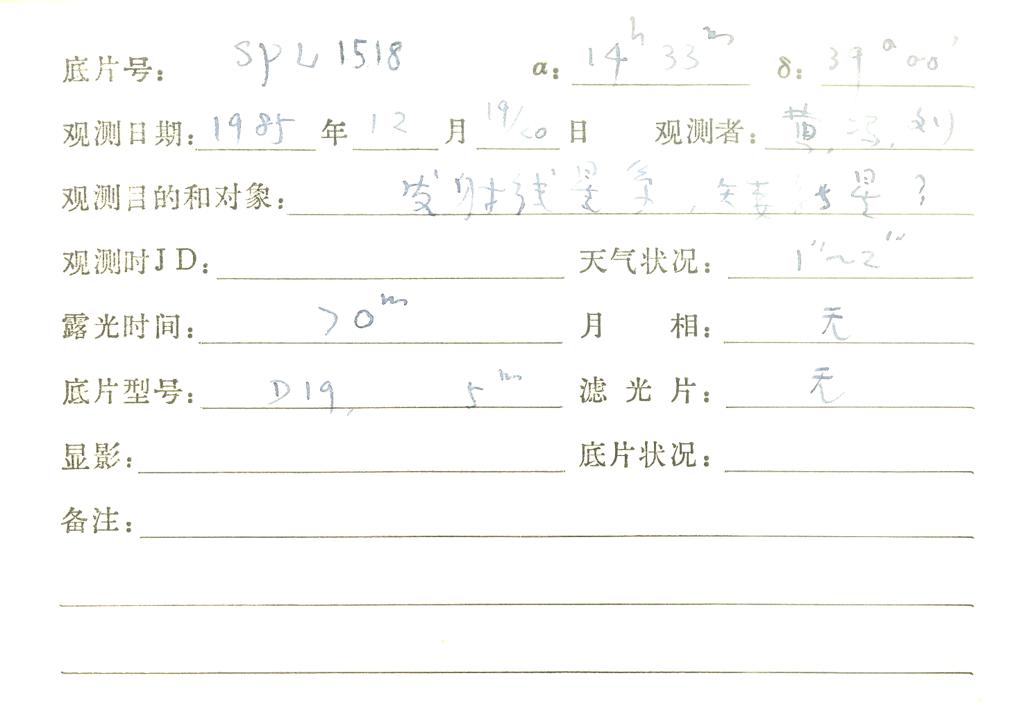 底片号: SPL 1518 α: 14h 33m δ: 39° 00′
观测日期: 1985 年 12 月 19/20 日 观测者: 黄, 冯, 刘
观测目的和对象: 发射线星系, 星?
观测时JD: 天气状况: 1″~2″
露光时间: 0m 月 相: 无
底片型号: D19, 5m 滤 光 片: 无
显影: 底片状况:
备注: